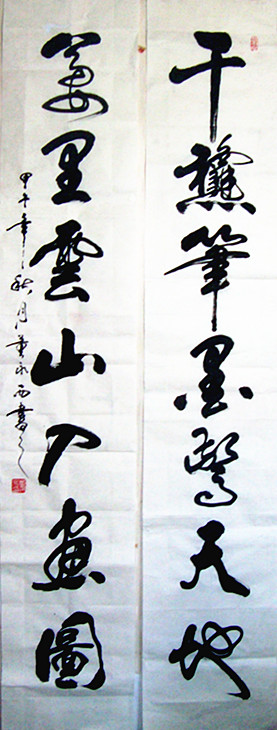 千龝筆墨驚天地
萬里雲山入畫圖
甲午年秋月董永西書